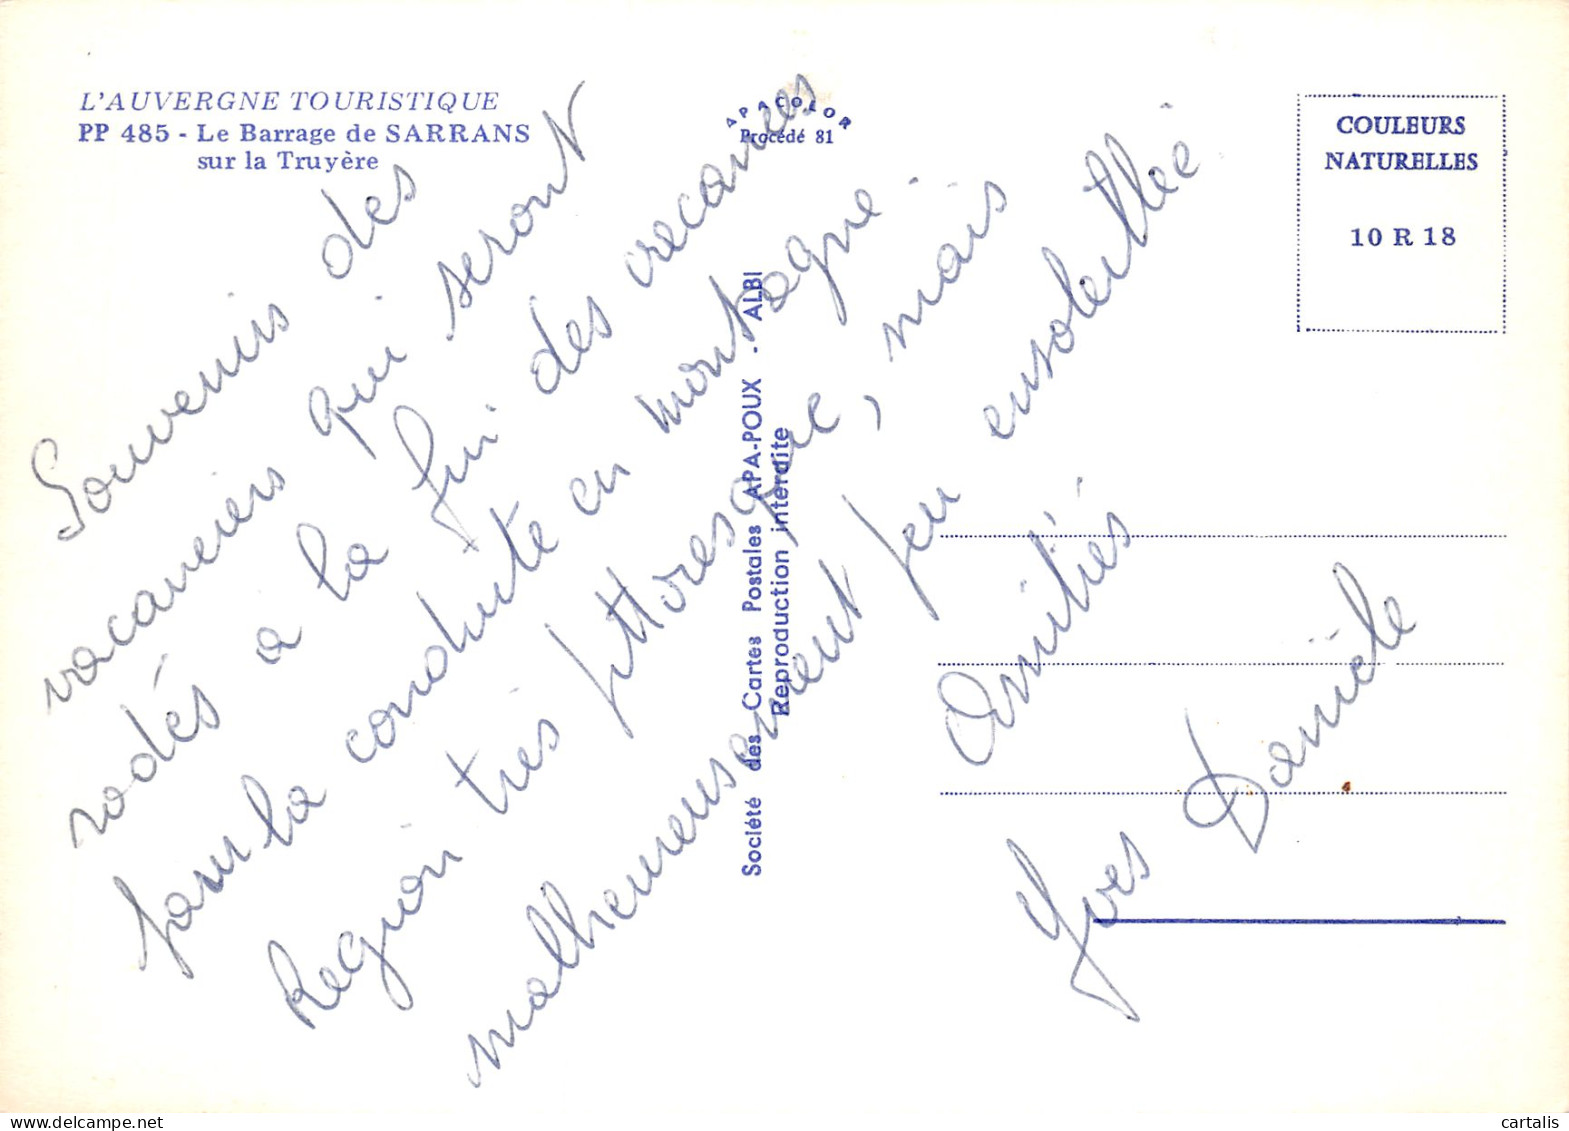 L'AUVERGNE TOURISTIQUE
PP 485 - Le Barrage de SARRANS
sur la Truyère
APACOLOR
Procédé 81
COULEURS
NATURELLES
10 R 18
Société des Cartes Postales APA-POUX - ALBI
Reproduction interdite
Souvenirs des
vacanciers qui seront
rodés à la fin des vacances
pour la conduite en montagne.
Région très pittoresque, mais
malheureusement peu ensoleillée
Amitiés
Yves Danièle
cartalis